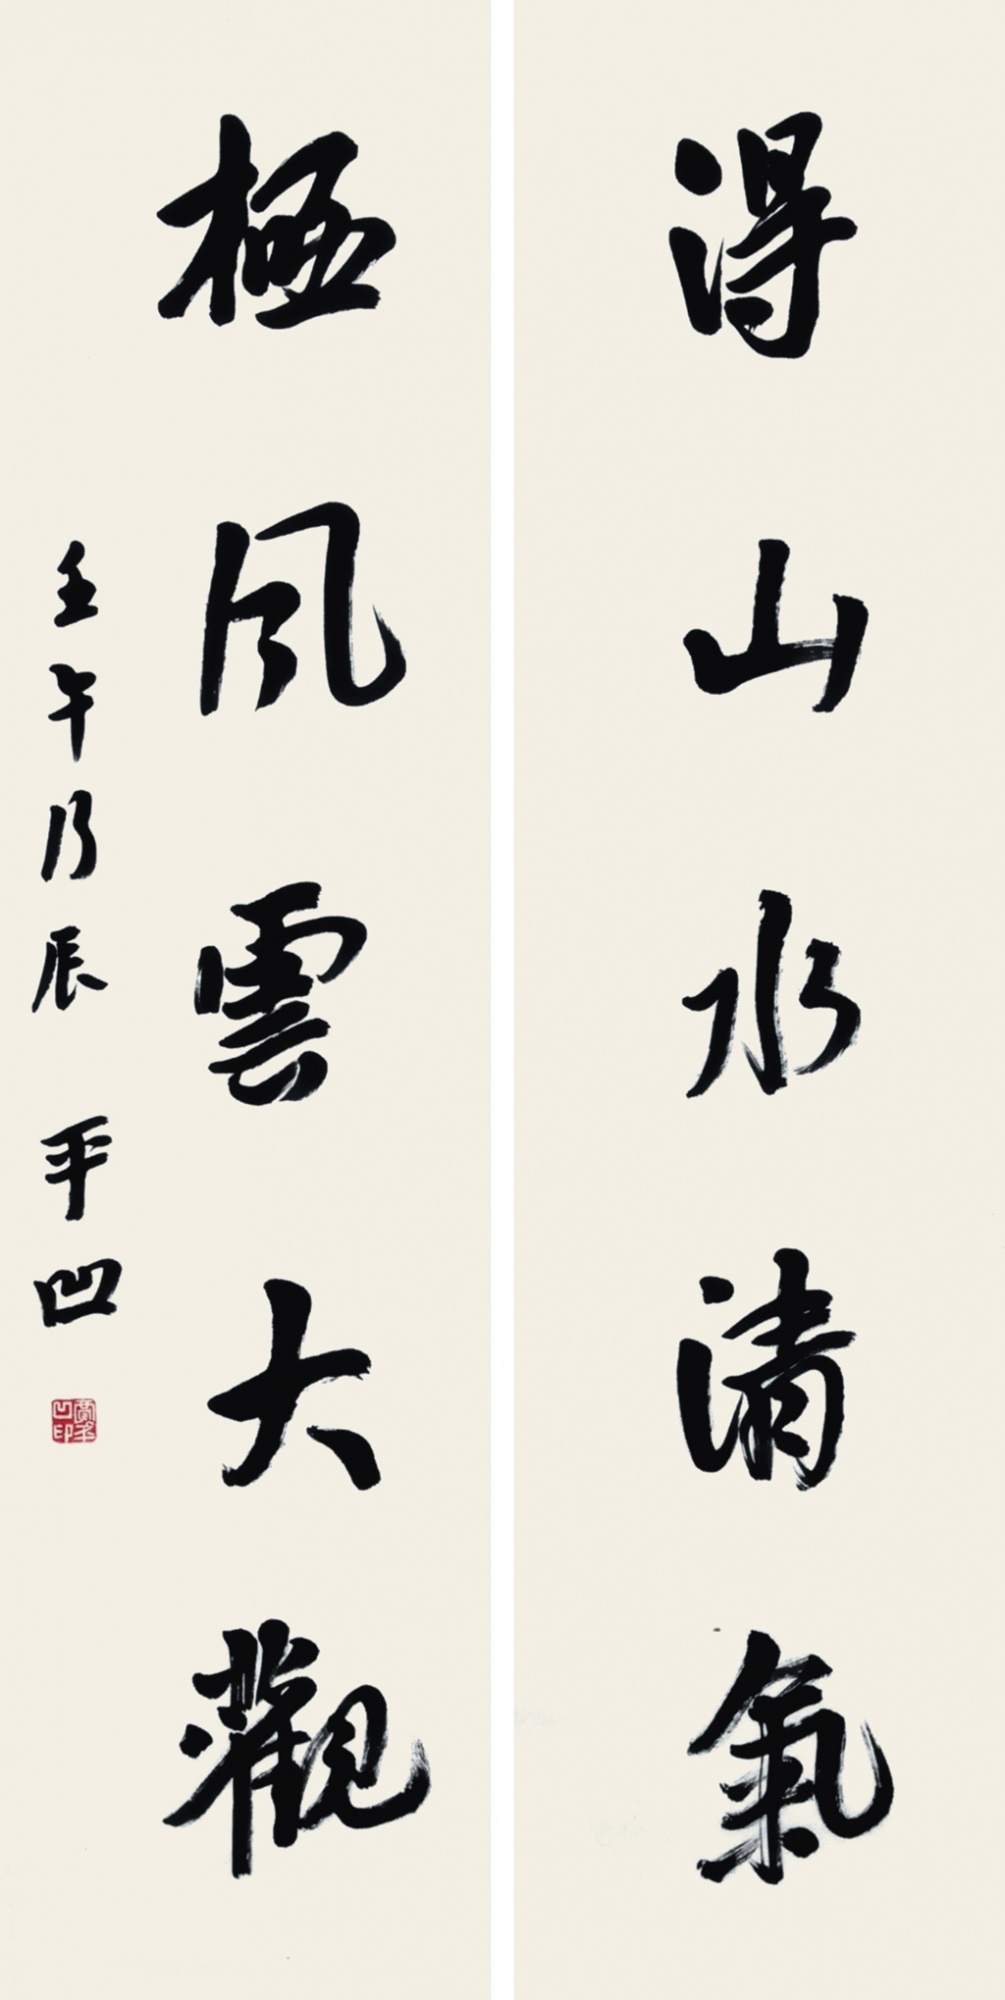 得山水清氣
極風雲大觀
壬午乃辰 平凹
賈平凹印